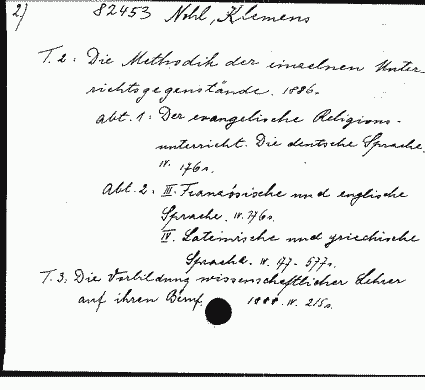 2) 82453 Nohl, Klemens
T. 2: Die Methodik der einzelnen Unter-
richtsgegenstände. 1886.
Abt. 1: Der evangelische Religions-
unterricht. Die deutsche Sprache.
IV. 176 s.
Abt. 2: III. Französische und englische
Sprache. IV. 176 s.
IV. Lateinische und griechische
Sprache. IV. 177-577 s.
T. 3: Die Vorbildung wissenschaftlicher Lehrer
auf ihren Beruf. IV. 215 s.